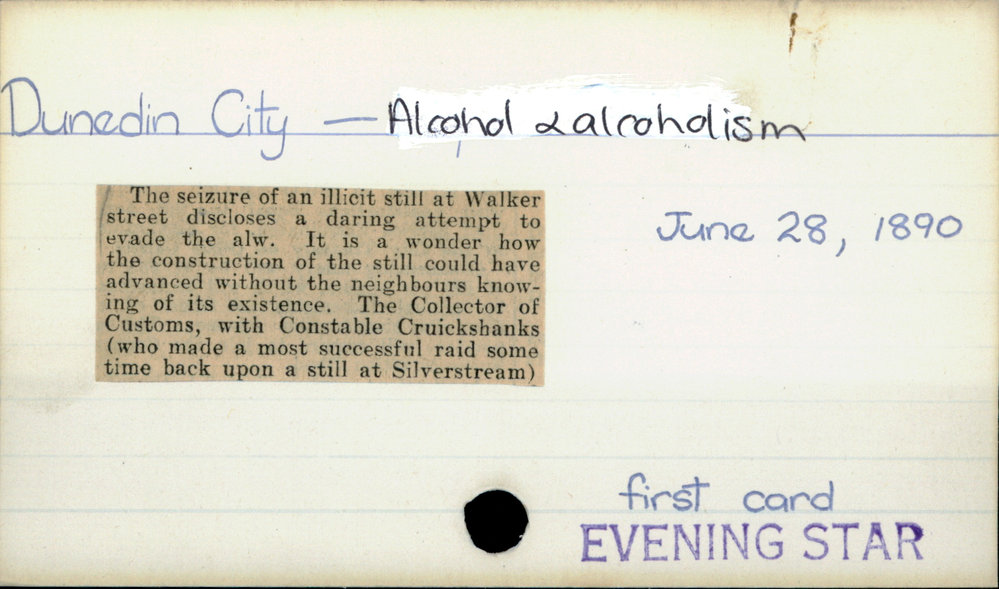 Dunedin City — Alcohol & alcoholism
The seizure of an illicit still at Walker
street discloses a daring attempt to
evade the alw. It is a wonder how
the construction of the still could have
advanced without the neighbours know-
ing of its existence. The Collector of
Customs, with Constable Cruickshanks
(who made a most successful raid some
time back upon a still at Silverstream)
June 28, 1890
first card
EVENING STAR